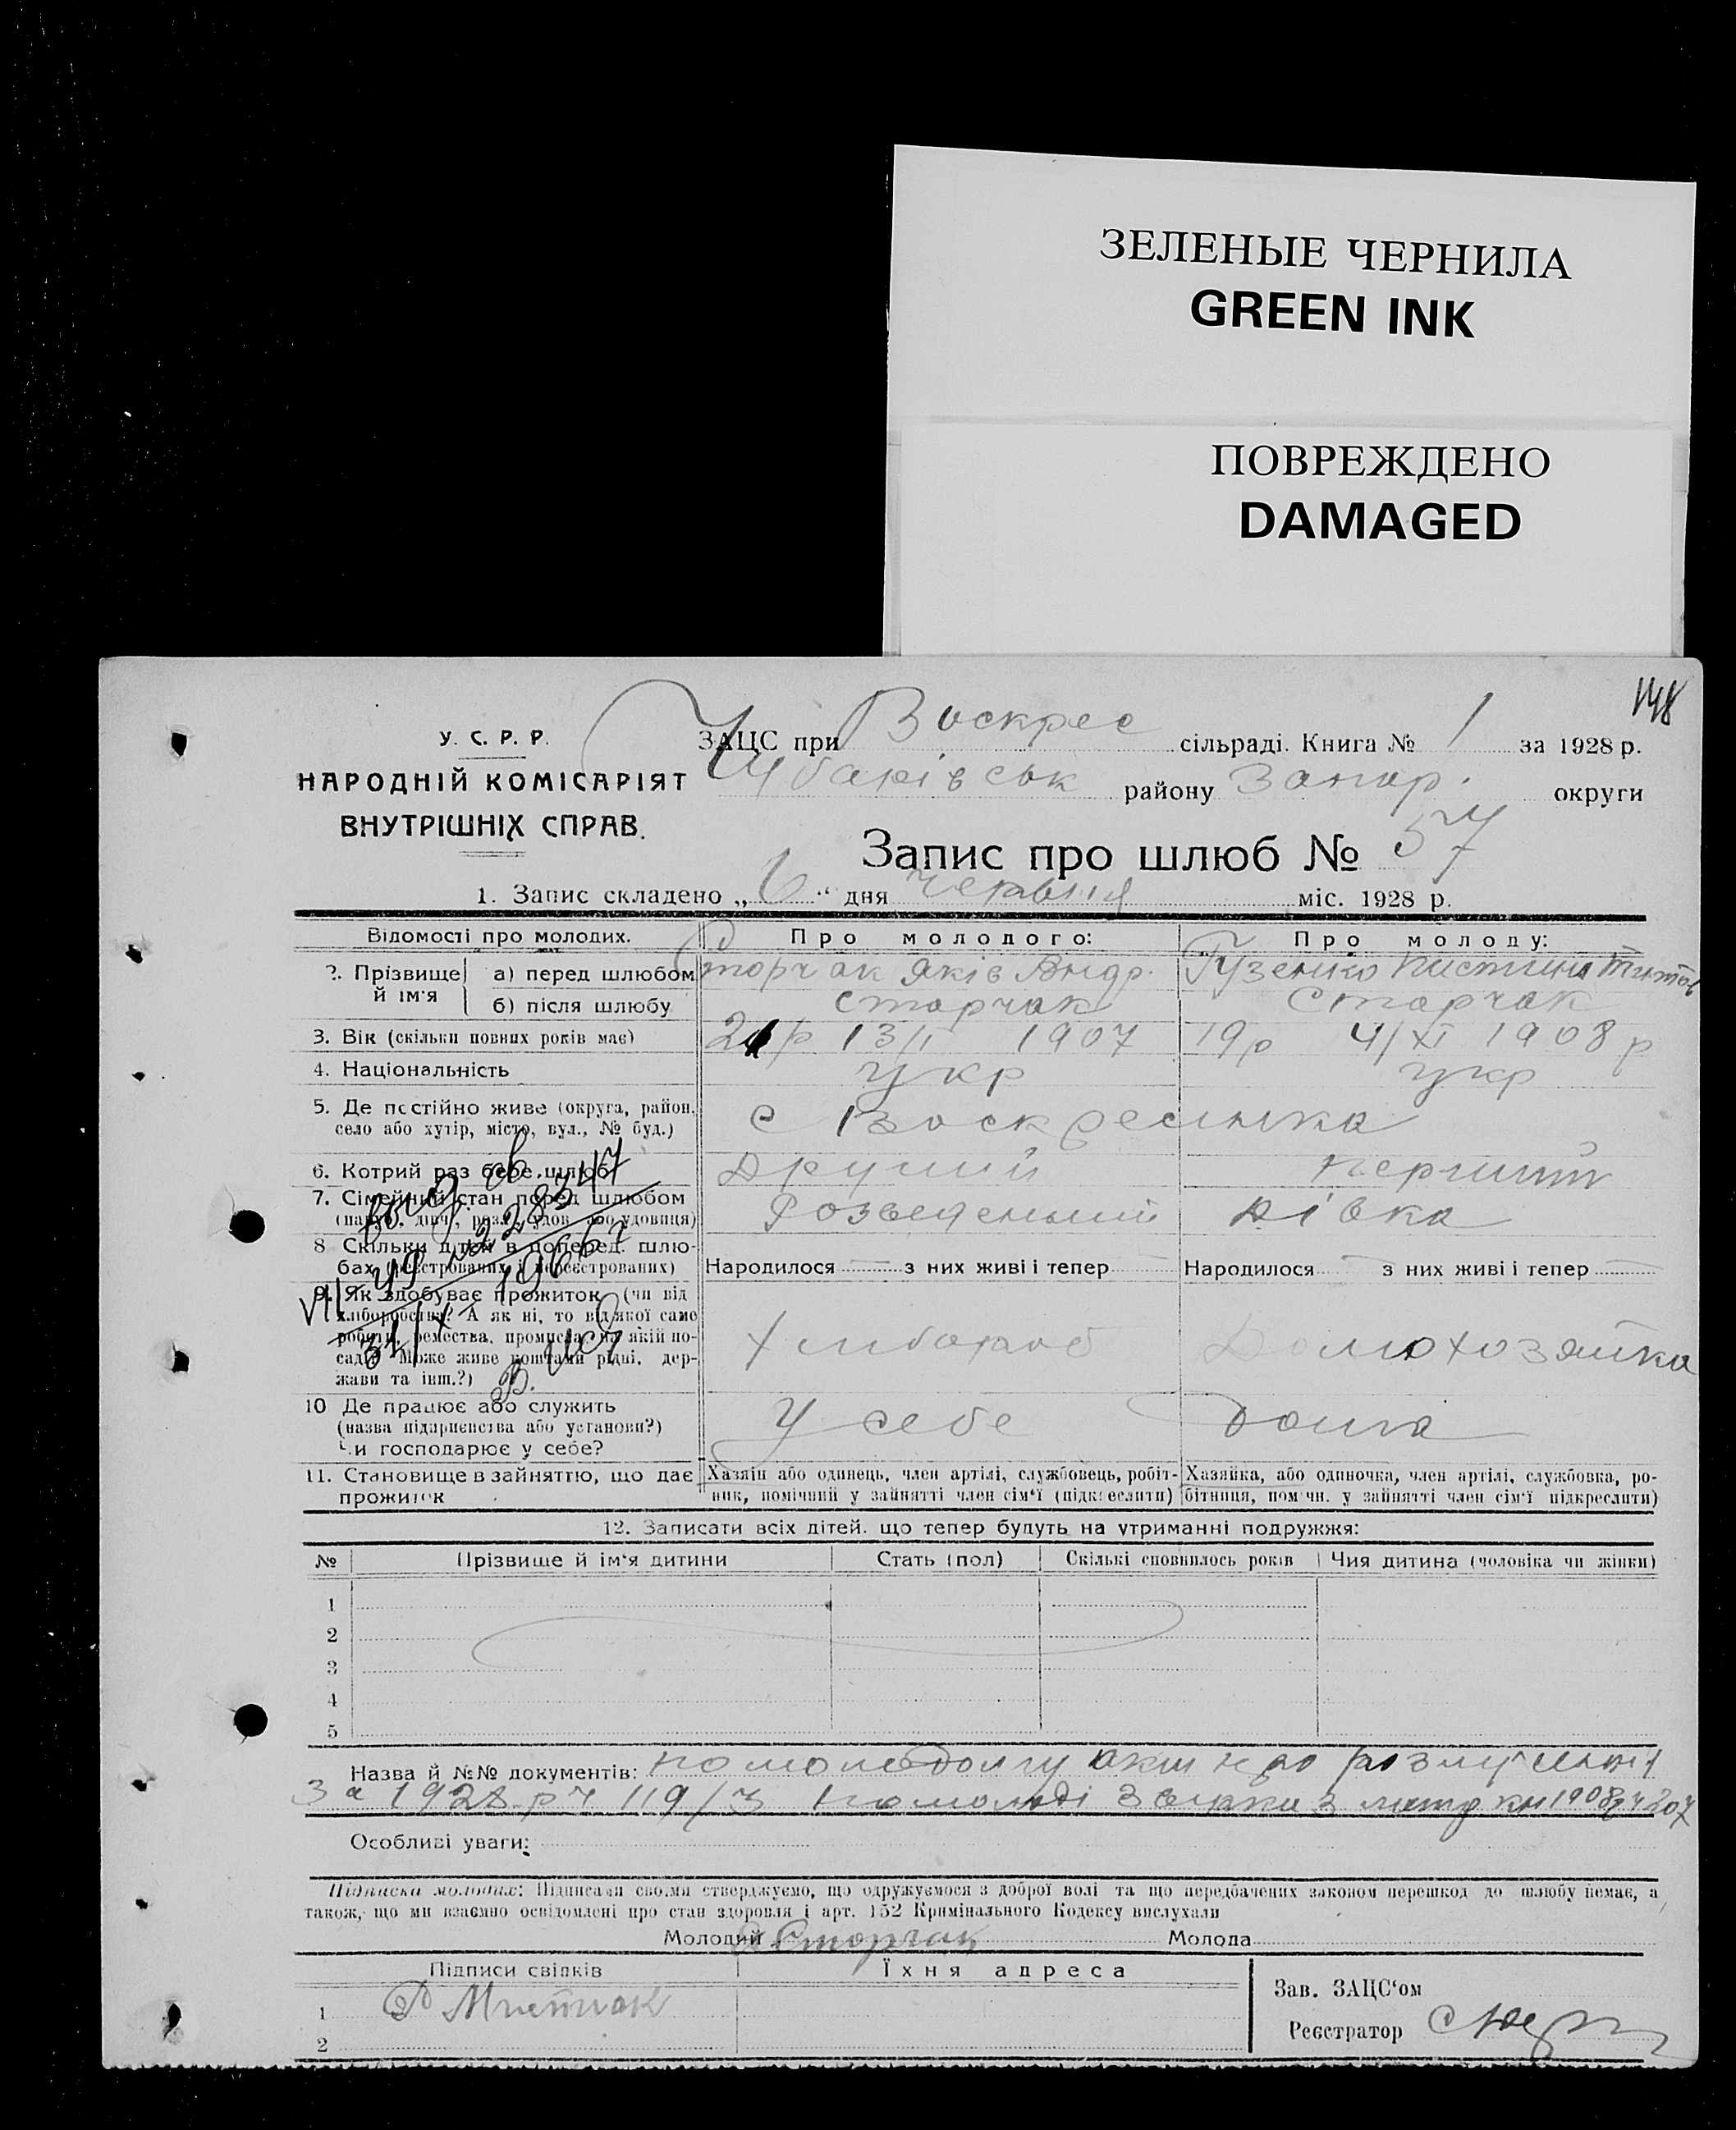 ЗЕЛЕНЫЕ ЧЕРНИЛА
GREEN INK
ПОВРЕЖДЕНО
DAMAGED
148
У. С. Р. Р.
НАРОДНІЙ КОМІСАРІЯТ
ВНУТРІШНІХ СПРАВ.
ЗАЦС при Воскрес сільраді. Книга № 1 за 1928 р.
Чубарівськ району Запор. округи
Запис про шлюб № 57
1. Запис складено „ 6 “ дня червня міс. 1928 р.
Відомості про молодих. Про молодого: Про молоду:
2. Прізвище й ім'я а) перед шлюбом Сторчак Яків Андр. Гузенко Пистина Титов
б) після шлюбу Сторчак Сторчак
3. Вік (скільки повних років має) 21 р 13/II 1907 19 р 4/XI 1908 р
4. Національність укр укр
5. Де постійно живе (округа, район, село або хутір, місто, вул., № буд.) с Воскресинка
6. Котрий раз бере шлюб Другий перший
7. Сімейний стан перед шлюбом Розведений дівка
(паруб., дівч., розл., удов. або удовиця)
8 Скільки дітей в поперед. шлюбах (реєстрованих і нереєстрованих) Народилося — з них живі і тепер Народилося — з них живі і тепер —
9. Як здобуває прожиток (чи від хліборобства? А як ні, то від якої саме роботи, ремества, промисла, на якій посаді? Може живе коштами рідні, держави та інш.?) Хлибороб Домохозяйка
10 Де працює або служить (назва підприємства або установи?) Чи господарює у себе? У себе дома
11. Становище в зайняттю, що дає прожиток Хазяїн або одинець, член артілі, службовець, робітник, помічний у зайнятті член сім'ї (підкреслити) Хазяйка, або одиночка, член артілі, службовка, робітниця, помічн. у зайнятті член сім'ї підкреслити)
12. Записати всіх дітей, що тепер будуть на утриманні подружжя:
№ Прізвище й ім'я дитини Стать (пол) Скількі сповнилось років Чия дитина (чоловіка чи жінки)
1
2
3
4
5
Назва й №№ документів: по молодому
за 1928 р ч 119/3 по молоді з кн 1908 ч 207
Особливі уваги:
Підписка молодих: Підписами своїми стверджуємо, що одружуємося з доброї волі та що передбачених законом перешкод до шлюбу немає, а
також, що ми взаємно освідомлені про стан здоровля і арт. 152 Кримінального Кодексу вислухали
Молодий Я Сторчак Молода
Підписи свідків Їхня адреса
1
2
Зав. ЗАЦС'ом
Реєстратор